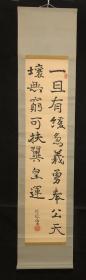 一旦有緩急義勇奉公天
壤無窮可扶翼皇運